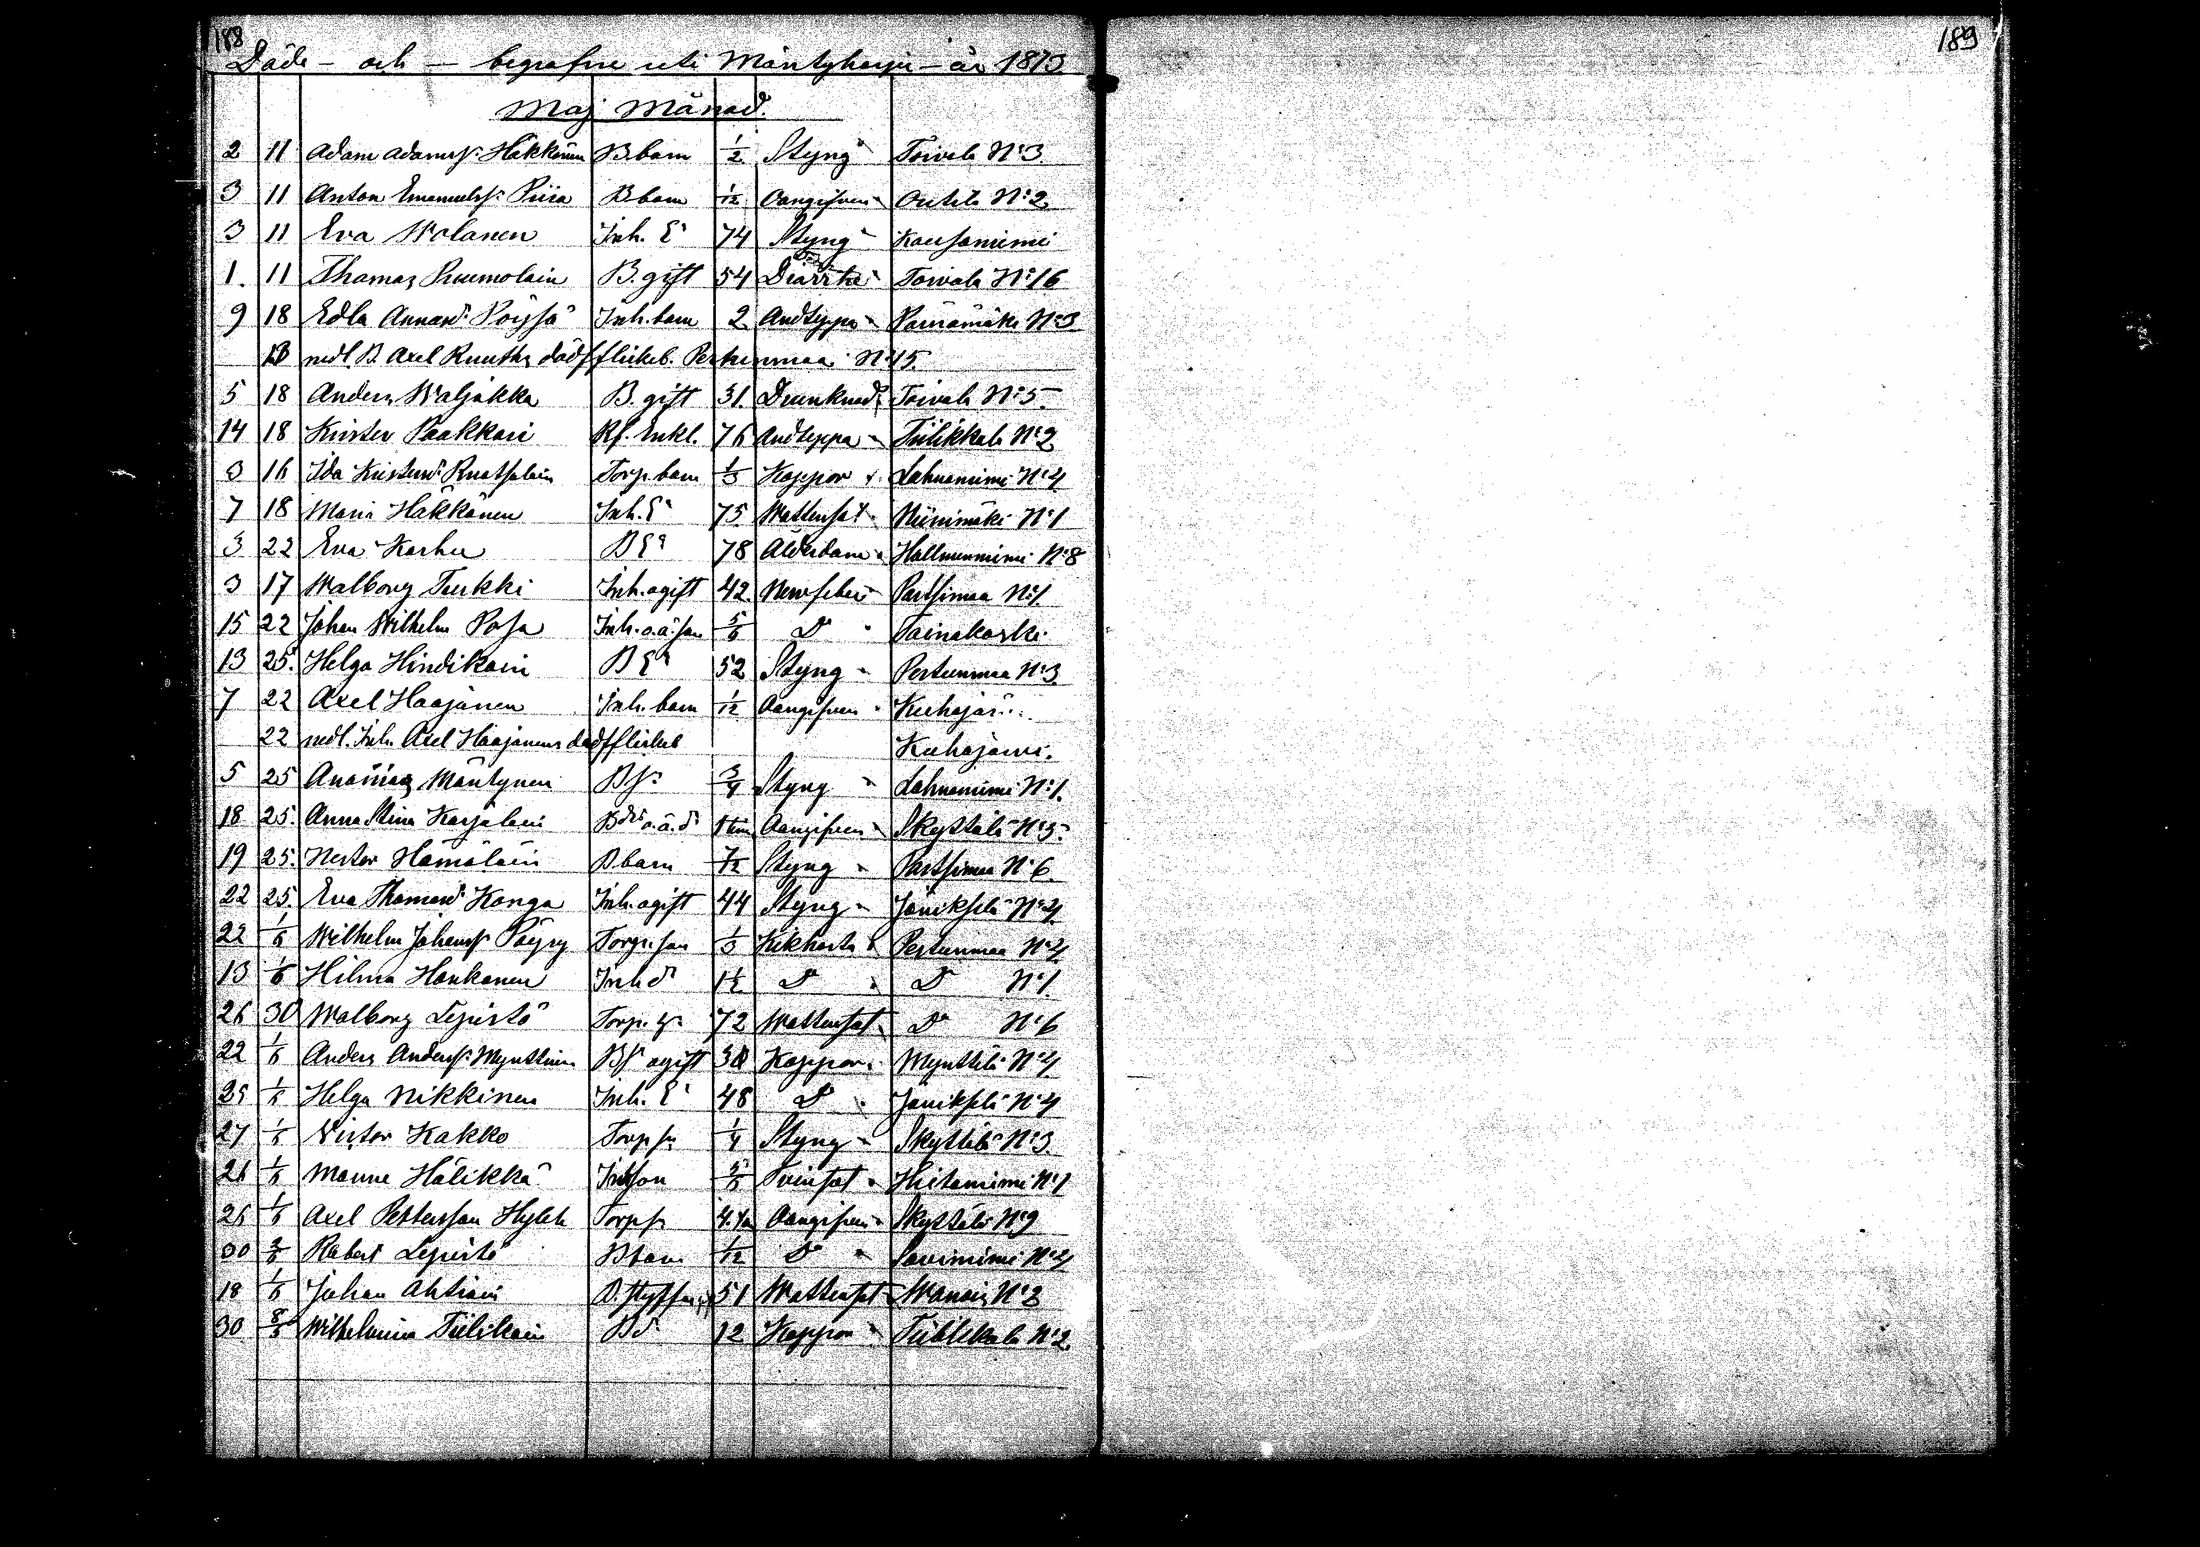 188
189
Döde - och - begrafne uti Mäntyharju - år 1873
Maj Månad.
2 11 Adam Adamss: Häkkänen B.barn 1/2 Styng " Toivola N:3
3 11 Anton Emanuelss: Piira B.barn 1/12 Oangifven " Outila N:2
3 11 Eva Wolanen Inh. E:a 74 Styng " Kousaniemi
1. 11 Thomas Ruumolain B. gift 54 Diarrhe " Toivola N:16
9 18 Edla Annasd: Pöyssä Inh. barn 2 Andtäppa " Parsämäki N:3
18 nedl. B. Axel Ruuths dödf flickeb. Pertunmaa N:15.
5 18 Anders Waljakka B. gift 31. Drunknad Toivola N:5.
14 18 Krister Paakkari Rf. Enkl. 76 Andteppa " Tiilikkala N:2
3 16 Ida Kristersd: Ruotsalain Torp.barn 1/3 Koppor " Lahnaniemi N:4
7 18 Maria Häkkänen Inh. E:a 75 Wattensot " Niinimäki N:1
3 22 Eva Karhu B E:a 78 Ålderdom " Hallmenniemi N:8
3 17 Walborg Turkki Inh. ogift 42. Nervfeber " Partsimaa N:1.
15 22 Johan Wilhelm Posa Inh. o.ä. son 5/6 D:o " Tainakoski
13 25. Helga Hindikain B E:a 52 Styng " Pertunmaa N:3
7 22 Axel Haajanen Inh. barn 1/12 Oangifven " Kuhajär...
22 nedl. Inh. Axel Haajanens dödf flickeb Kuhajärvi.
5 25 Mäntynen B s: 3/4 Styng " Lahnaniemi N:1.
18 25. Anna Stina Karjalain B d:s o.ä. d: 1 tim Oangifven " Skyttälä N:3.
19 25. Nestor Hämäläin B.barn 7/12 Styng " Partsimaa N:6.
22 25. Eva Thomasd: Konga Inh. ogift 44 Styng " Joutkselä N:4.
22 1/6 Wilhelm Johanss: Pöyry Torp. son 1/3 Kikhosta " Pertunmaa N:4
13 1/6 Hilma Honkanen Inh d: 1 1/2 D:o " D:o N:1
26 30 Walborg Lepistö Torp. 72 Wattensot " D:o N:6
22 1/6 Anders Anderss: Mynttinen B s: ogift Koppor " Mynttilä N:4
25 1/6 Helga Nikkinen Inh. E:a 48 D:o " N:4
27 1/6 Victor Kakko Torp s: 1/4 Styng " Skyttälä N:3
26 1/6 Manne Hälikkä Inh son Tvinsot " Hietaniemi N:1
26 1/6 Axel Pettersson Torp s: Oangifven " Skyttälä N:9
30 2/6 Robert Lepistö B barn 1/12 D:o " Saviniemi N:4
18 1/6 Johan Ahtiain B. styfson 51 Wattensot N:2
30 8/6 Wilhelmina Tiilikain B d: 12 Koppor " Tiilikkala N:2.